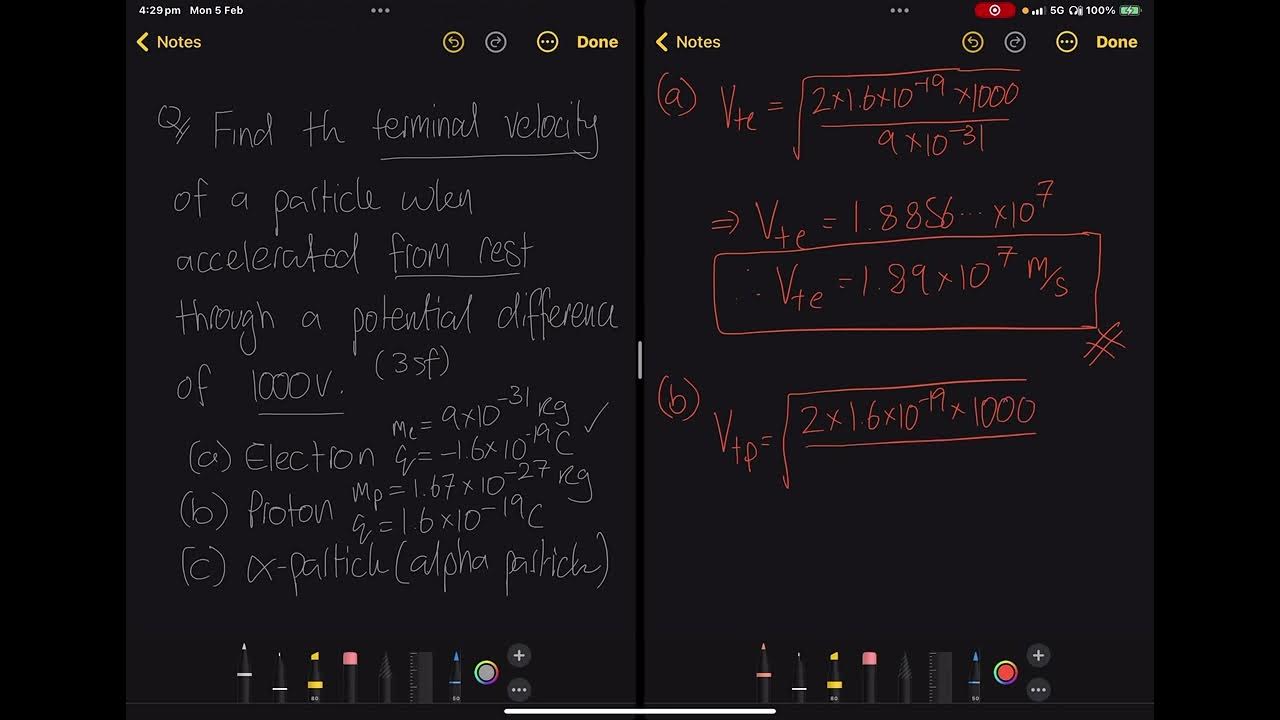 4:29 pm Mon 5 Feb
5G 100%
Notes
Done
Q// Find th terminal velocity
of a particle when
accelerated from rest
through a potential difference
of 1000V. (3sf)
(a) Electron mₑ = 9×10⁻³¹ kg
q = -1.6×10⁻¹⁹C ✓
(b) Proton mₚ = 1.67×10⁻²⁷ kg
q = 1.6×10⁻¹⁹C
(c) α-particle (alpha particle)
80
50
Notes
Done
(a) Vₜₑ = √(2×1.6×10⁻¹⁹×1000 / 9×10⁻³¹)
⇒ Vₜₑ = 1.8856... ×10⁷
∴ Vₜₑ = 1.89×10⁷ m/s
(b) Vₜₚ = √(2×1.6×10⁻¹⁹×1000
80
50